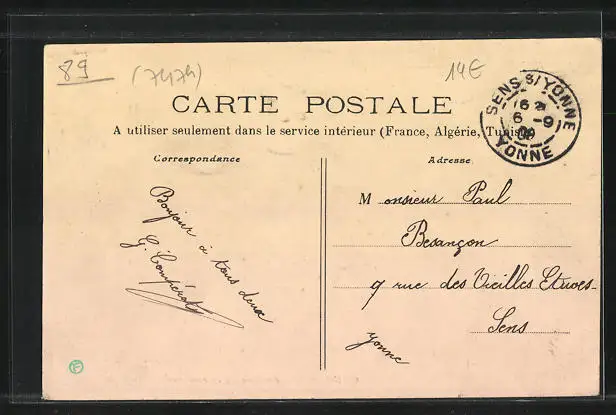 89
(7474)
14€
CARTE POSTALE
A utiliser seulement dans le service intérieur (France, Algérie, Tunisie)
SENS S/YONNE
6 -9
09
YONNE
Correspondance
Adresse
Bonjour à tous deux
G. Compérot
Monsieur Paul
Besançon
9 rue des Vieilles Etuves-
Sens
Yonne